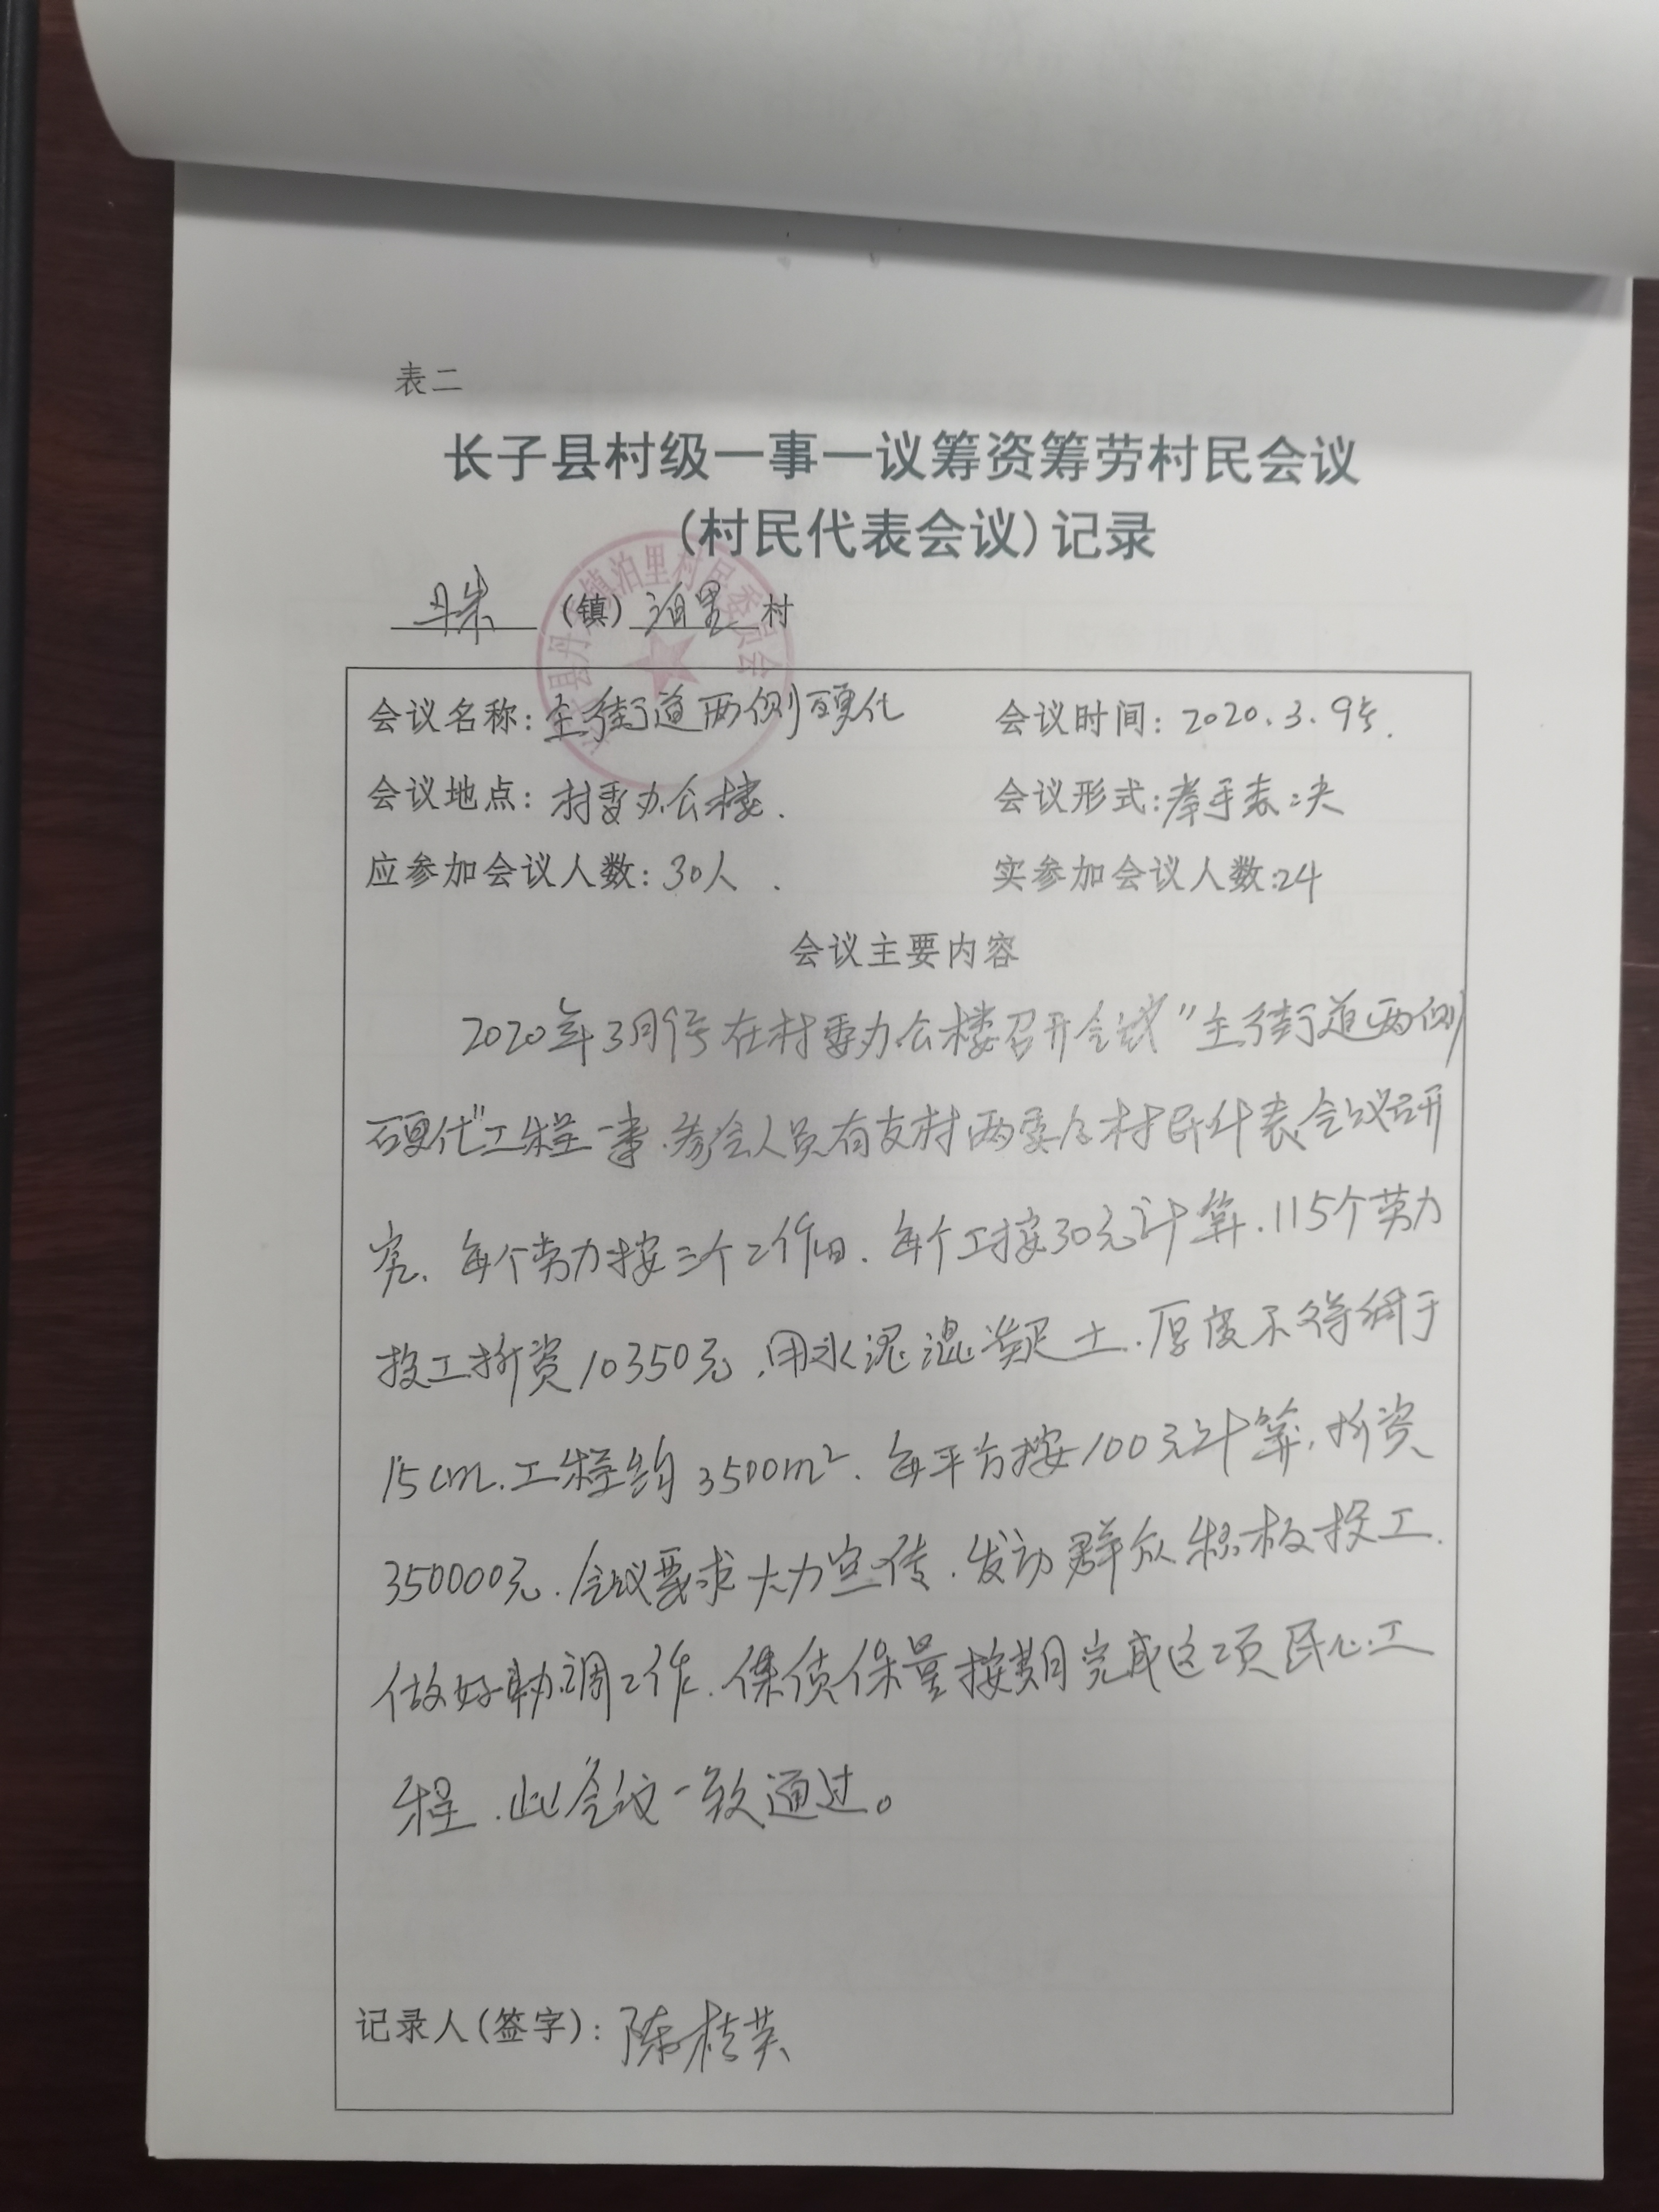 表二
长子县村级一事一议筹资筹劳村民会议
(村民代表会议)记录
丹朱(镇)泊里村
县丹 镇泊里村民委员会
会议名称:主街道两侧硬化 会议时间:2020.3.9号.
会议地点:村委办公楼. 会议形式:举手表决
应参加会议人数:30人. 实参加会议人数:24
会议主要内容
2020年3月9号在村委办公楼召开会议"主街道两侧
硬化"工程一事.参会人员有支村两委及村民代表,会议研
究、每个劳力按三个工作日、每个工按30元计算.115个劳力
投工折资10350元,用水泥混凝土.厚度不得绸于
15cm.工程约3500m².每平方按100元计算,折资
350000元.会议要求大力宣传.发动群众积极投工.
做好协调工作.保质保量按期完成这项民心工
程.此会议一致通过。
记录人(签字):陈桂英